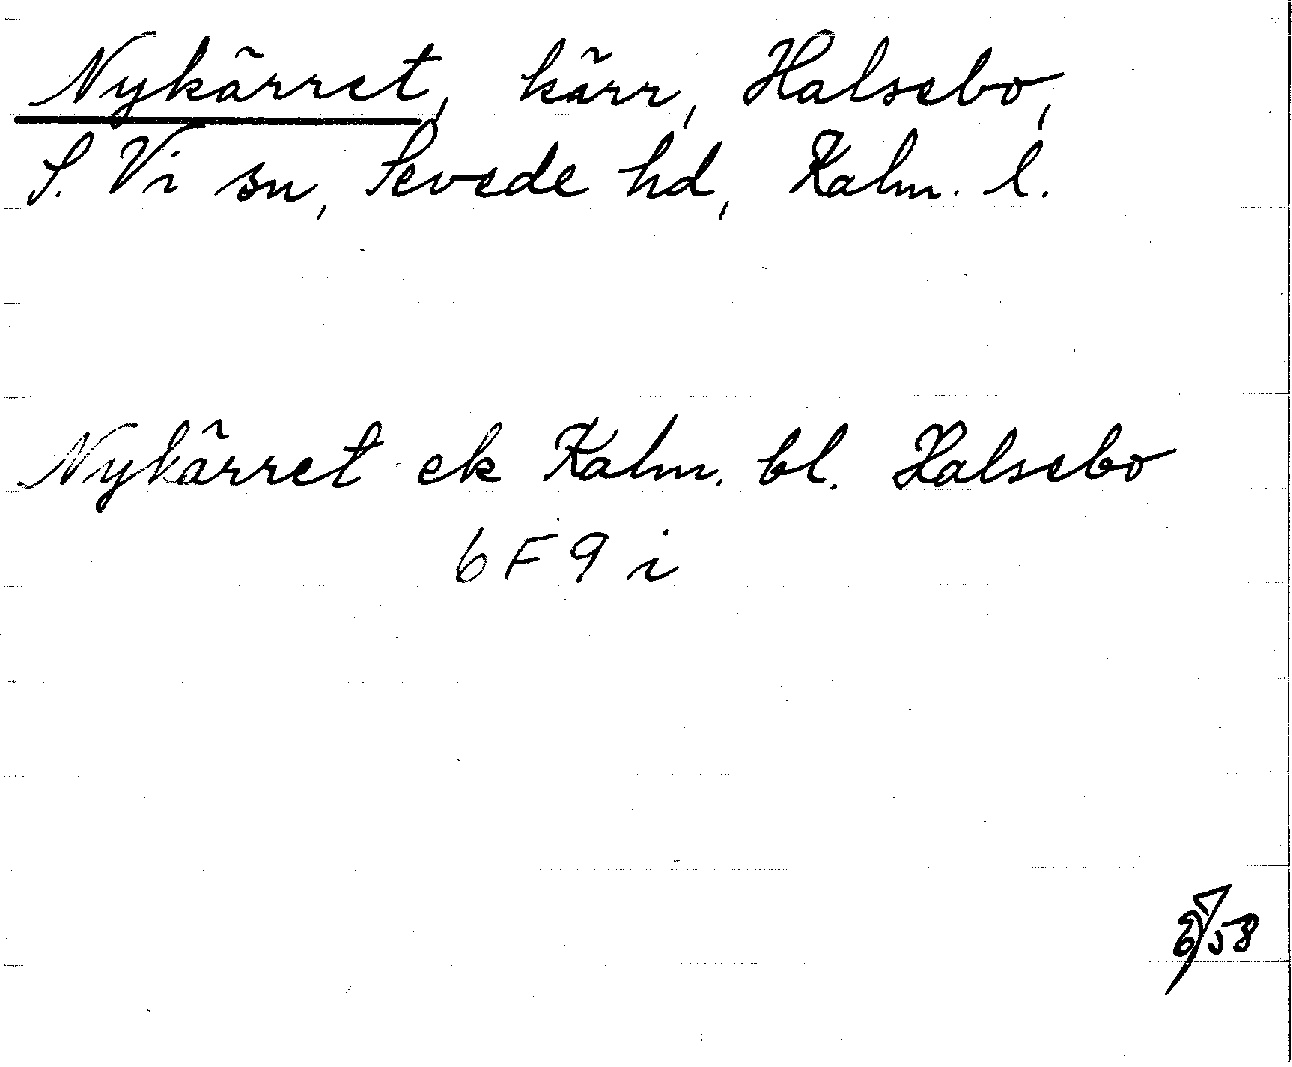 Nykärret, kärr, Halsebo,
S. Vi sn, Sevede hd, Kalm. l.
Nykärret ek Kalm. bl. Halsebo
6F9i